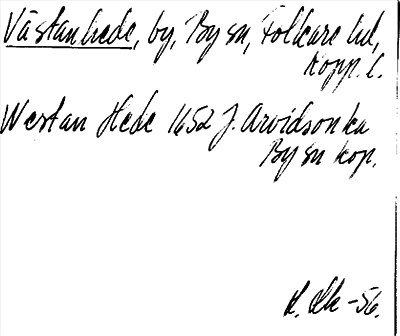 Västanhede, by, By sn, Folkare hd,
Kopp. l.
Westan Hede 1652 J. Arvidson ka
By sn kop.
-56.